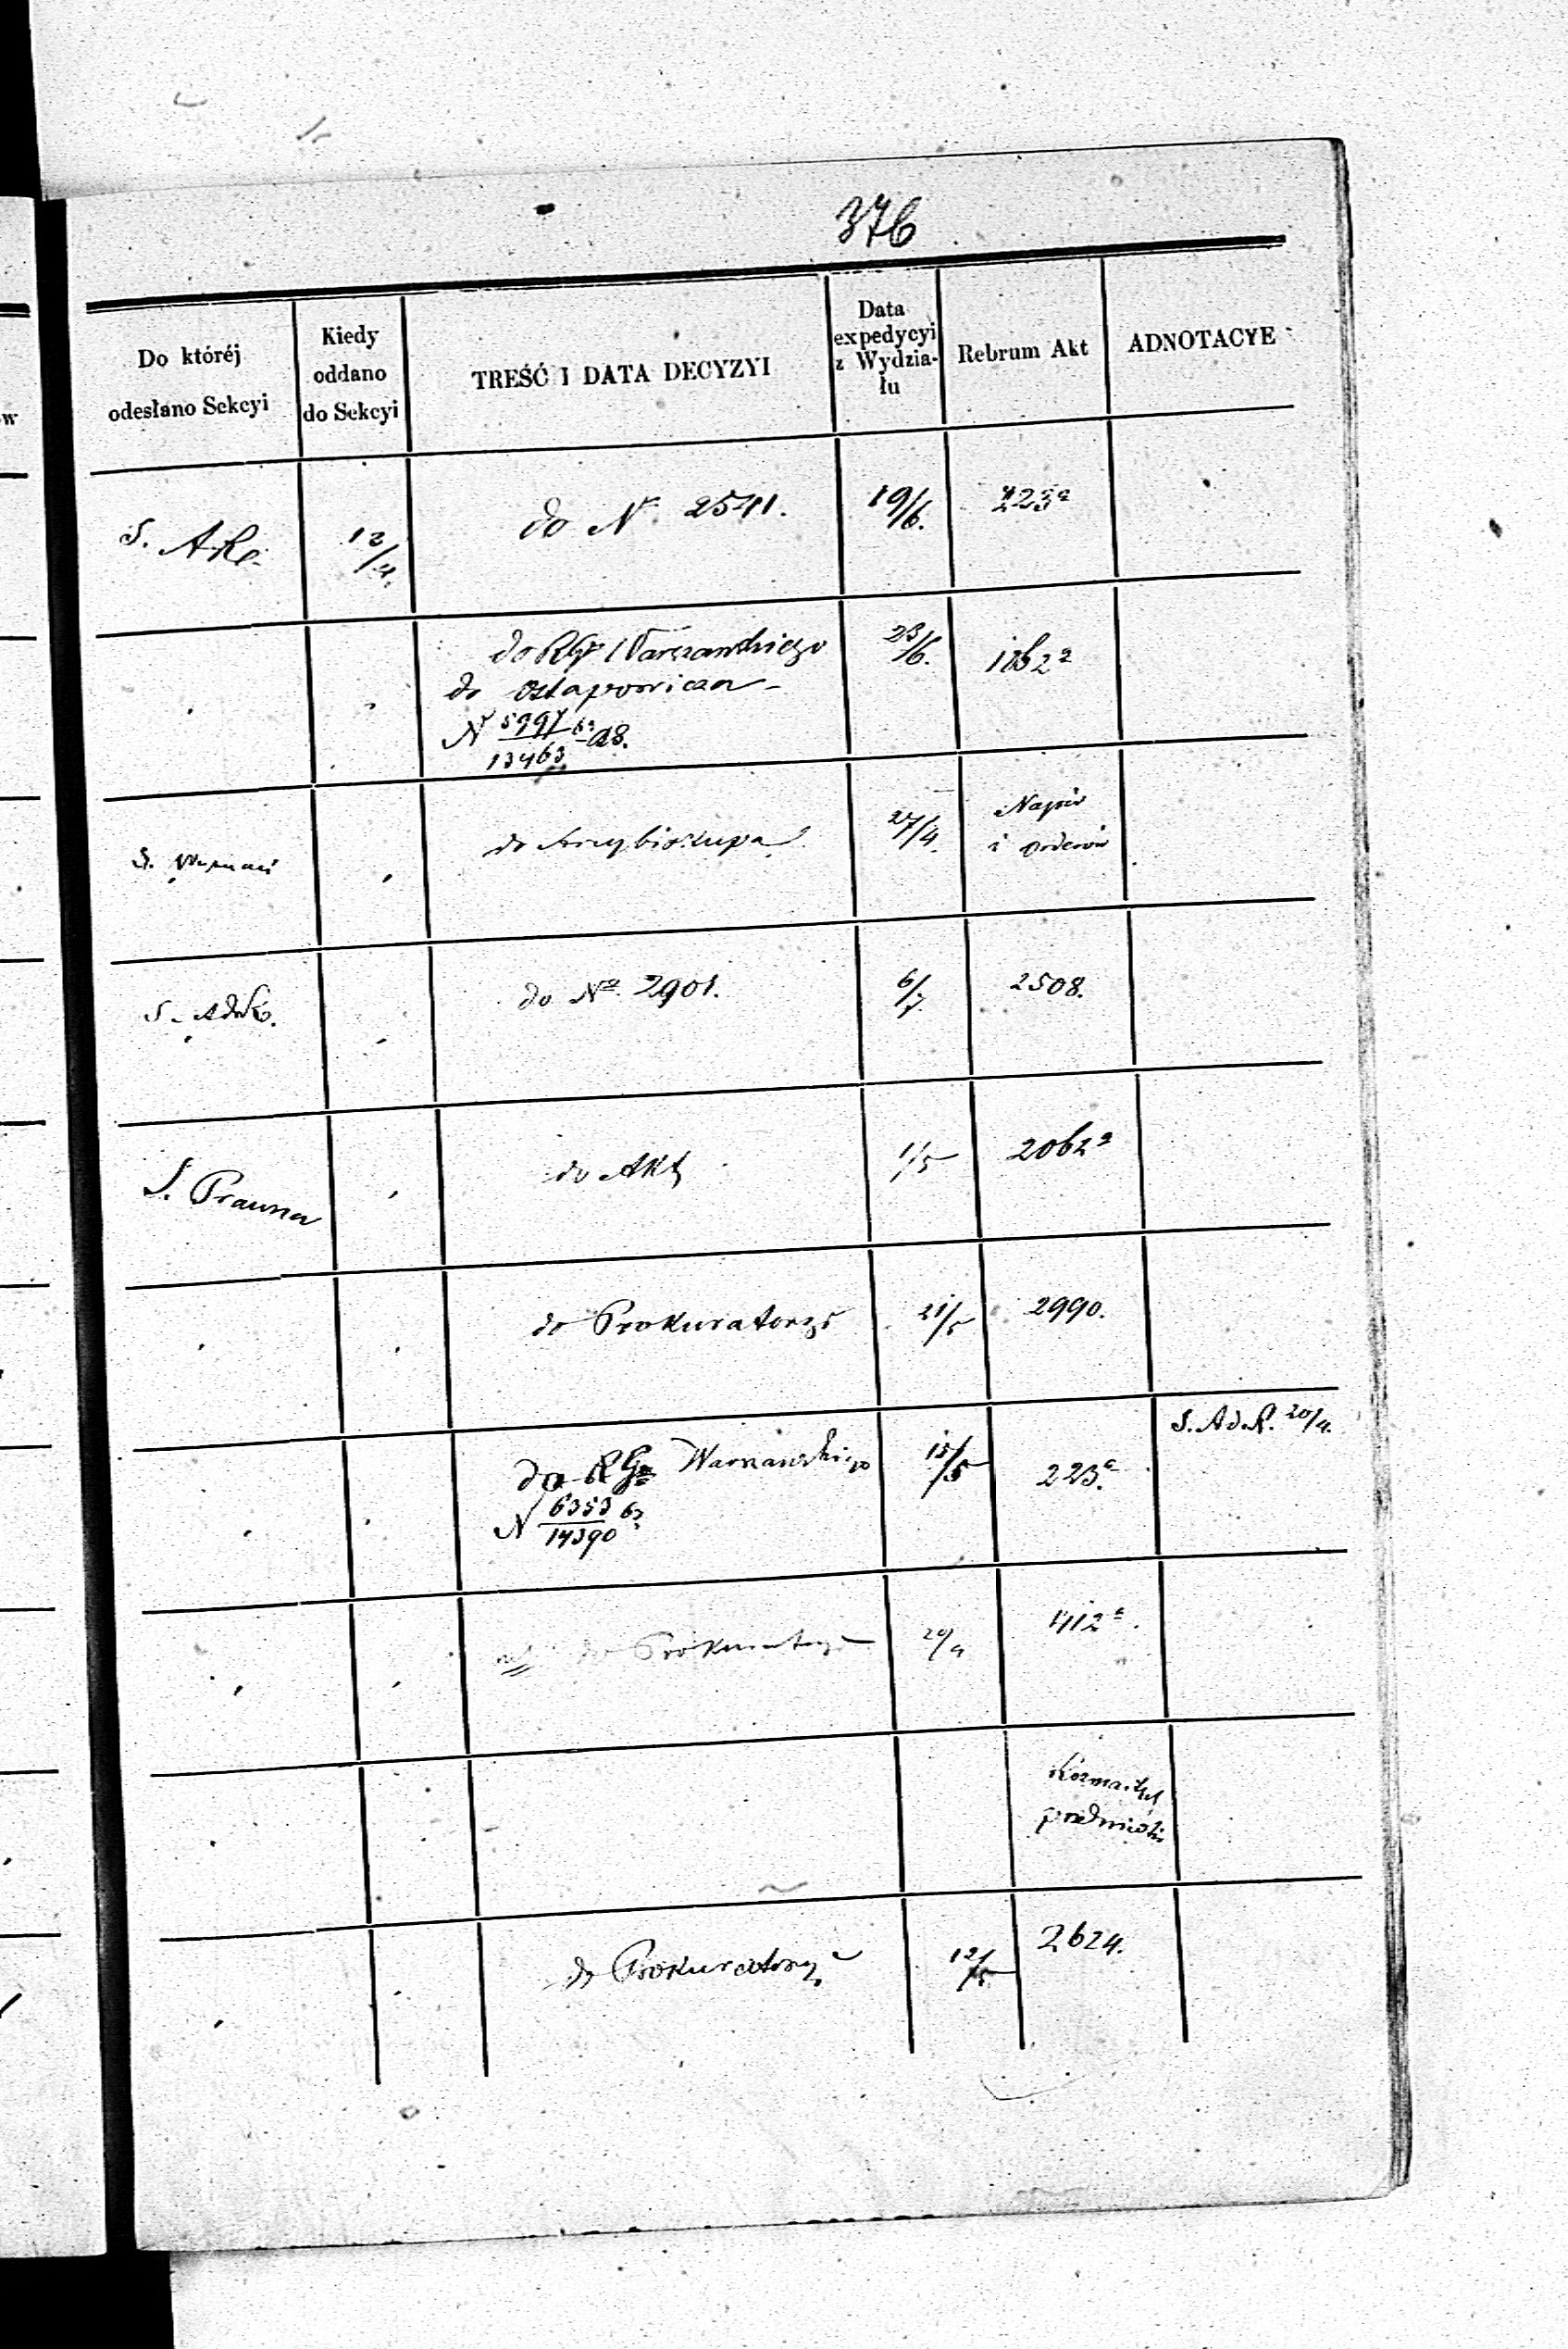 376
Do któréj
odesłano Sekcyi
Kiedy
oddano
do Sekcyi
TREŚĆ I DATA DECYZYI
Data
expedycyi
z Wydzia-
łu
Rebrum Akt
ADNOTACYE
S. AKo.
12/4.
do Nr. 2541.
19/6.
223a
do RGr Warszawskiego
do Ostapowicza
Nr 5997/13463
23/6.
do Arcybiskupa
27/4
Napisów
i orderów
S. AdKo.
do No. 2901.
6/7.
2508.
S. Prawna
do Akt
1/5
2062a
do Prokuratoryi
21/5
2990.
do RGo Warszawskiego
N 6353/14390 63
15/5
223a.
S. AdK. 20/4.
do Prokuratoryi
20/4
1412a.
Rozmaitych
przedmiotów
do Prokuratoryi
12/5
2624.